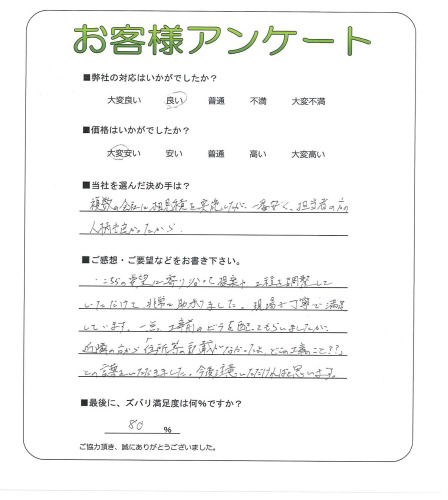 お客様アンケート
■弊社の対応はいかがでしたか？
大変良い 良い 普通 不満 大変不満
■価格はいかがでしたか？
大変安い 安い 普通 高い 大変高い
■当社を選んだ決め手は？
複数の会社に相見積を実施したが、一番安く、担当者の方の
人柄も良かったから。
■ご感想・ご要望などをお書き下さい。
こちらの要望に寄りそった提案や工程を調整して
いただけて非常に助かりました。現場も丁寧で満足
しています。一点、工事前のビラを配ってもらいましたが、
近隣の方から「住所等の記載がなかったよ、どこの工事のこと??」
との言葉をいただきました。今後注意いただければと思います。
■最後に、ズバリ満足度は何%ですか？
80 %
ご協力頂き、誠にありがとうございました。